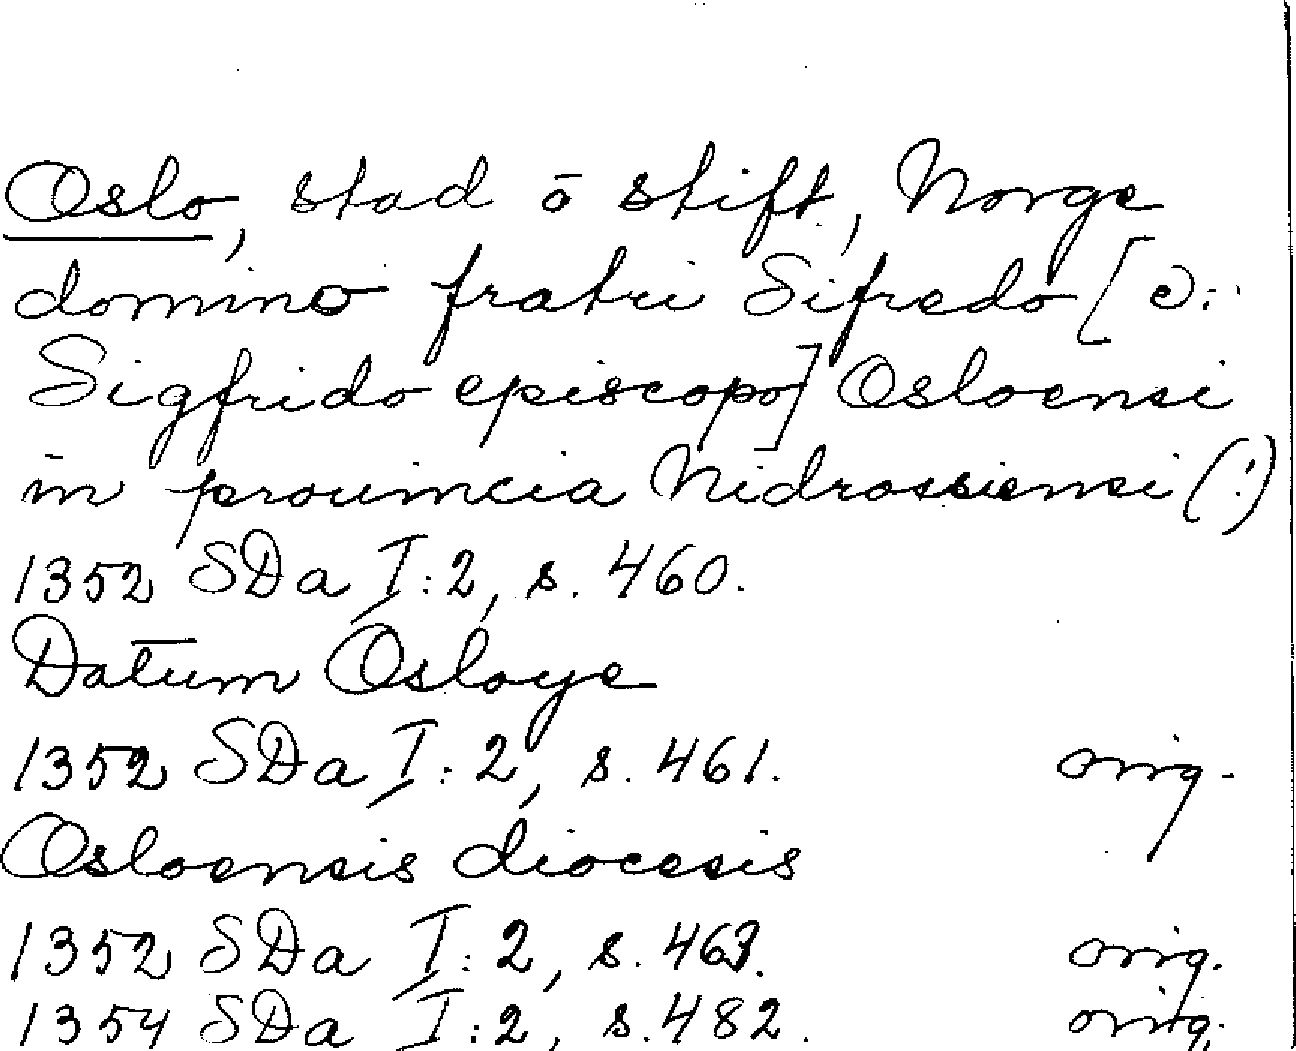 Oslo, stad o stift, Norge
domino fratri Sifredo [ɔ:
Sigfrido episcopo] Osloensi
in prouincia Nidrosiensi (!)
1352 SDa I:2, s. 460.
Datum Osloye
1352 SDa I:2, s. 461. orig.
Osloensis diocesis
1352 SDa I:2, s. 463. orig.
1354 SDa I:2, s. 482. orig.